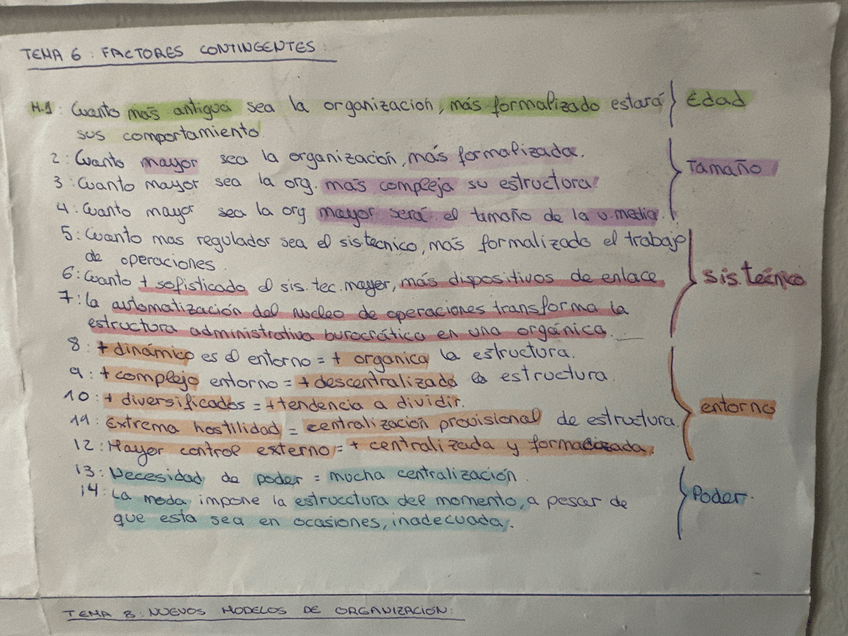 TEMA 6: FACTORES CONTINGENTES
H.1: Cuanto más antigua sea la organización, más formalizado estará } Edad
sus comportamiento.
2: Cuanto mayor sea la organización, más formalizada.
3: Cuanto mayor sea la org. más compleja su estructura
4: Cuanto mayor sea la org mayor será el tamaño de la u. media.
} Tamaño
5: Cuanto mas regulador sea el sistecnico, más formalizado el trabajo
de operaciones.
6: Cuanto + sofisticado el sis. tec. mayer, más dispositivos de enlace
7: la automatización del nucleo de operaciones transforma la
estructura administrativa burocrática en una orgánica.
} sis. tecnico
8: + dinámico es el entorno = + organica la estructura.
9: + complejo entorno = + descentralizada la estructura
10: + diversificados = + tendencia a dividir.
11: Extrema hostilidad = centralización provisional de estructura.
12: Mayor control externo = + centralizada y formalizada.
} entorno
13: Necesidad de poder = mucha centralización.
14: La moda impone la estrucctura del momento, a pesar de
que esta sea en ocasiones, inadecuada.
} Poder.
TEMA 8: NUEVOS MODELOS DE ORGANIZACIÓN: